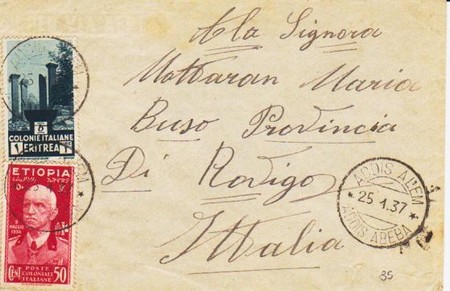 Alla Signora
Mottaran Maria
Buso Provincia
Di Rovigo
Ittalia
COLONIE ITALIANE
1 ERITREA L
ETIOPIA
9
MAGGIO
1936
POSTE
COLONIALI ITALIANE
CENT 50
ADIS ABEM
25.1.37
ADIS ABEBA
35